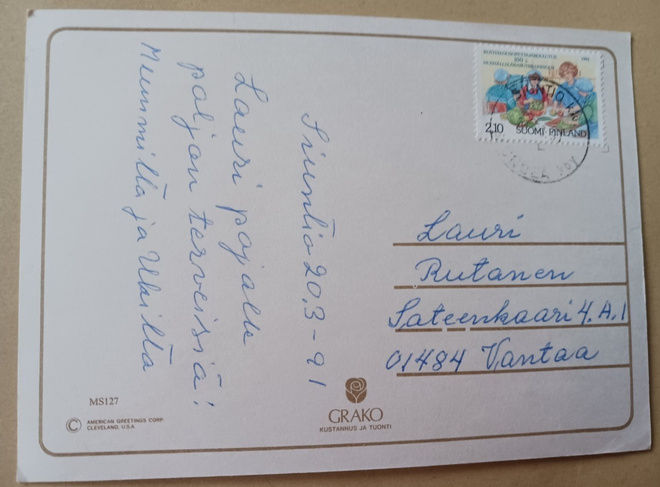 Siuntio 20.3-91
Lauri pojalle
paljon terveisiä!
Mummilta ja Ukilta
1991
2,10 SUOMI FINLAND
Lauri
Rutanen
Sateenkaari 4.A.1
01484 Vantaa
MS127
© AMERICAN GREETINGS CORP.
CLEVELAND, U.S.A.
GRAKO
KUSTANNUS JA TUONTI